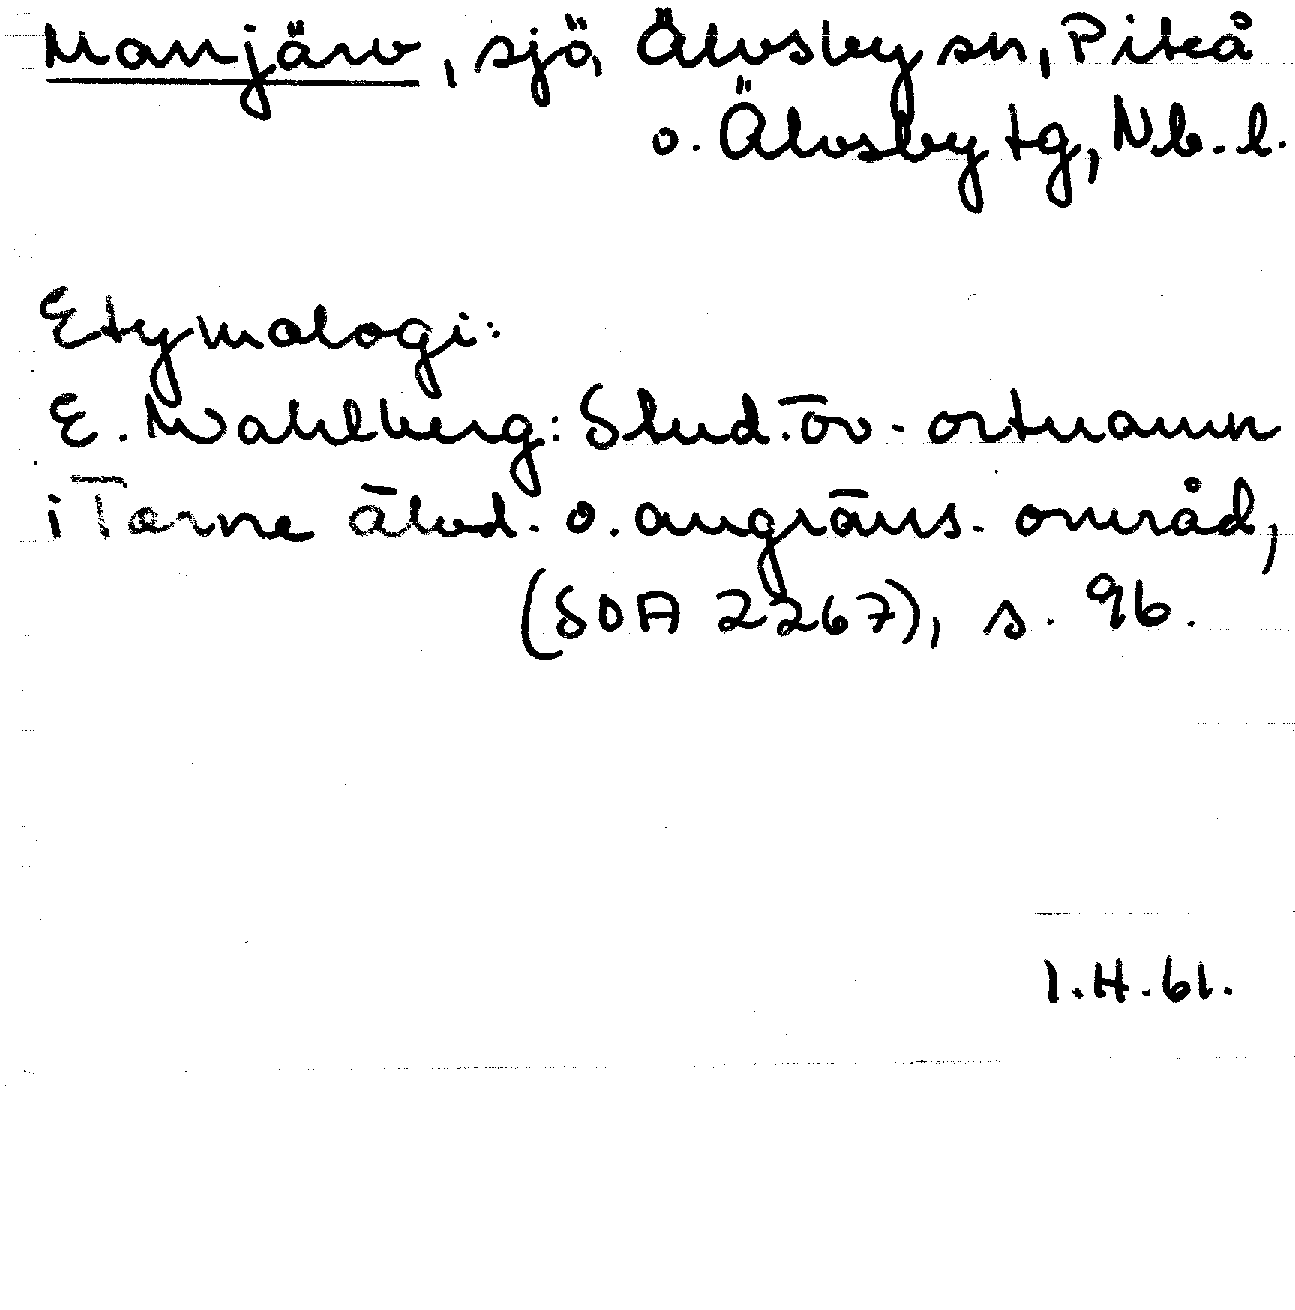 Manjärv, sjö, Älvsby sn, Piteå
o. Älvsby tg, Nb. l.
Etymologi:
E. Wahlberg: Stud. öv. ortnamn
i Torne älvd. o. angräns. områd,
(SOA 2267), s. 96.
I.H. 61.